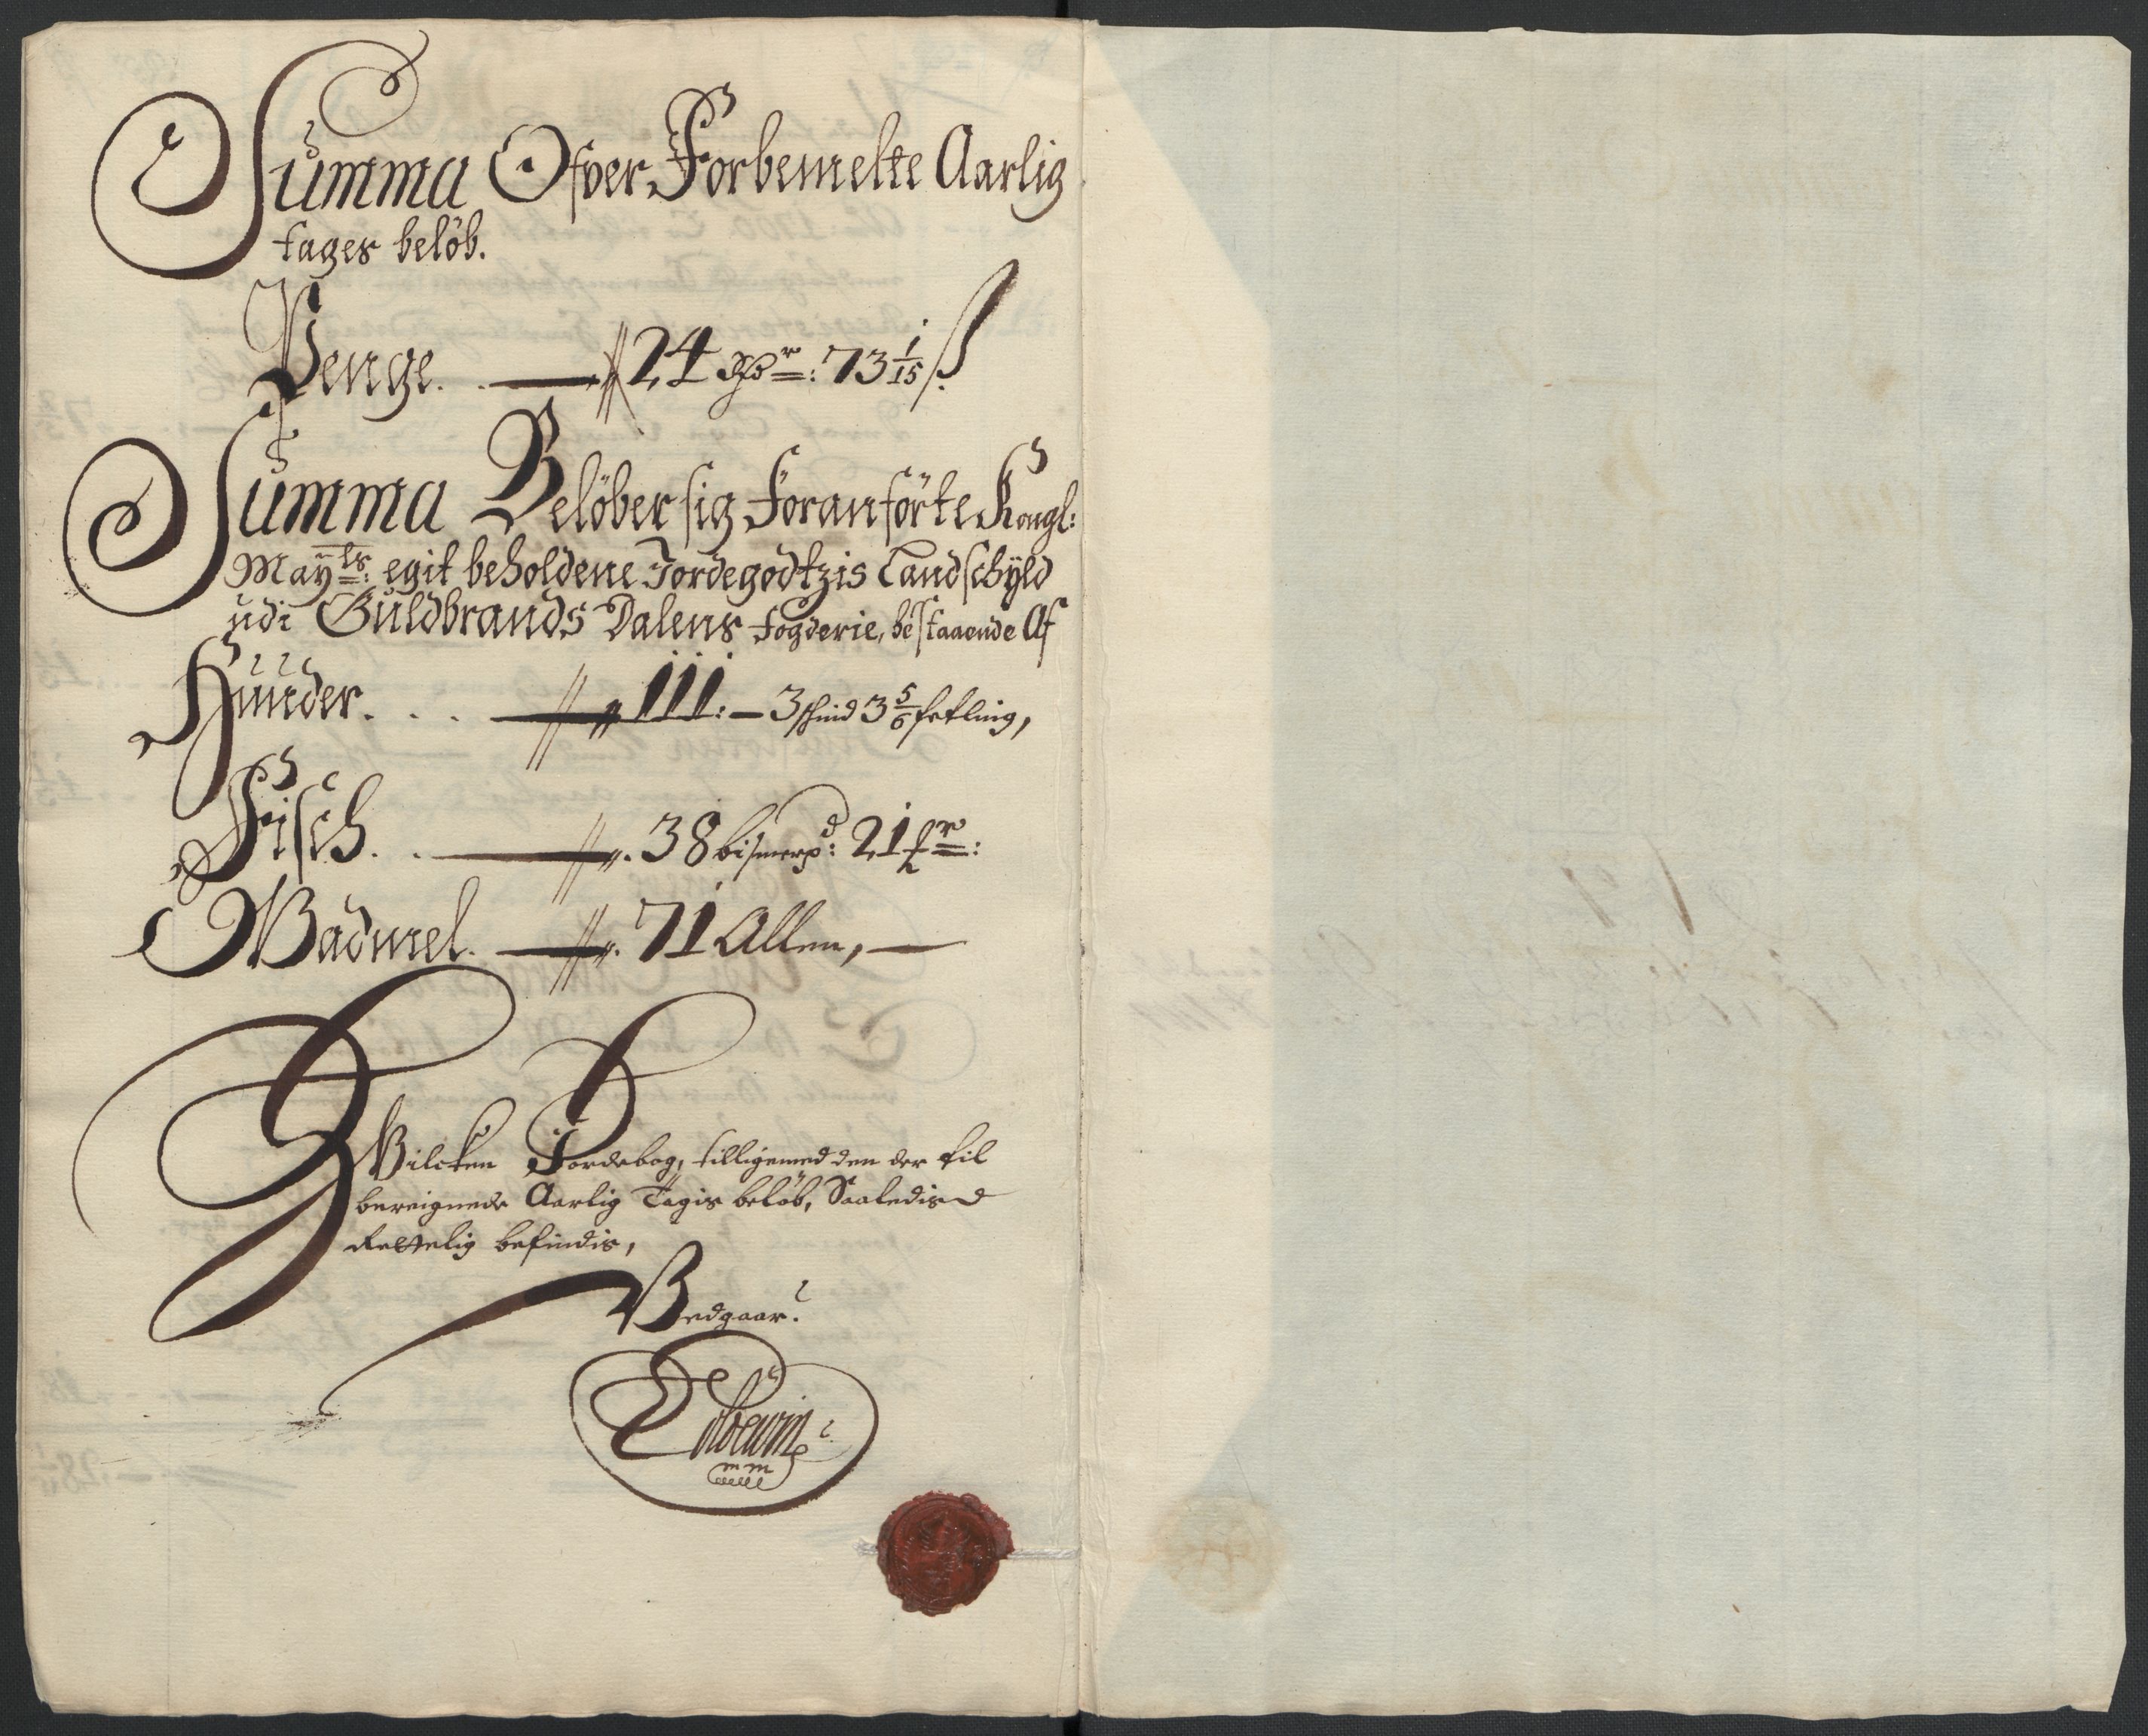 Summa Ofver Forbemelte Aarlig
tages beløb.
Penge. . — 24 Rdr: 73 1/15 ß
Summa Beløber sig Foranførte Kongl:
Mayts: egit beholdene Jordegodtzis Landschÿld
udi Guldbrands Dalens fogderie, bestaaende Af
Huuder. . . — 111: — 3 skind 3 5/6 fetling,
Fisch. . — 38 bismerpd: 21
Wadmel. — 71 Allen, —
Wilcken Jordebog, tilligemed den der til
bereignede Aarlig Tagis beløb, Saaledis
Rettelig befindis,
Vedgaar
mm